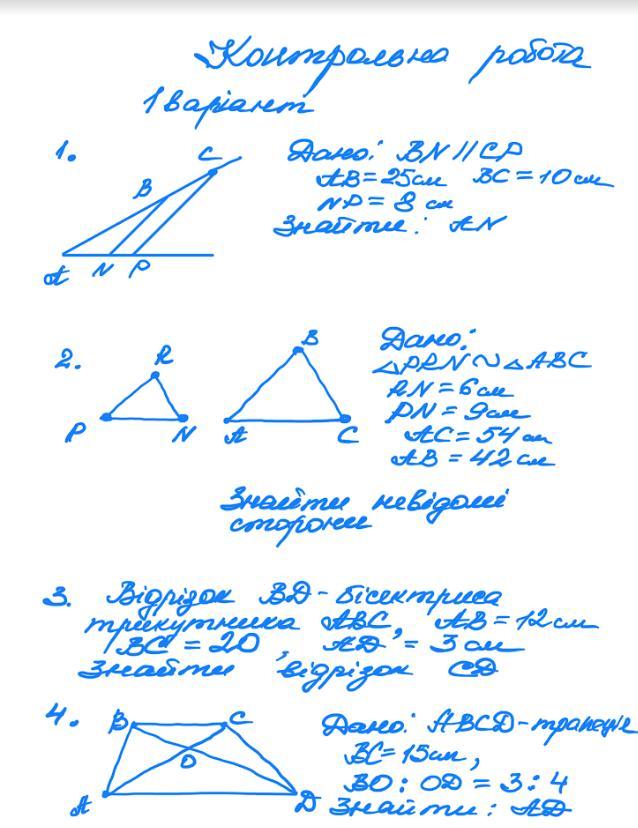 Контрольна робота
1 варіант
1.
Дано: BN // CP
AB = 25 см BC = 10 см
NP = 8 см
Знайти: AN
C
B
A N P
2.
R
P N
B
A C
Дано:
△PRN ~ △ABC
RN = 6 см
PN = 9 см
AC = 54 см
AB = 42 см
Знайти невідомі
сторони
3. Відрізок BD - бісектриса
трикутника ABC, AB = 12 см
BC = 20, AD = 3 см
Знайти відрізок CD
4.
B C
O
A D
Дано: ABCD - трапеція
BC = 15 см,
BO : OD = 3 : 4
Знайти: AD